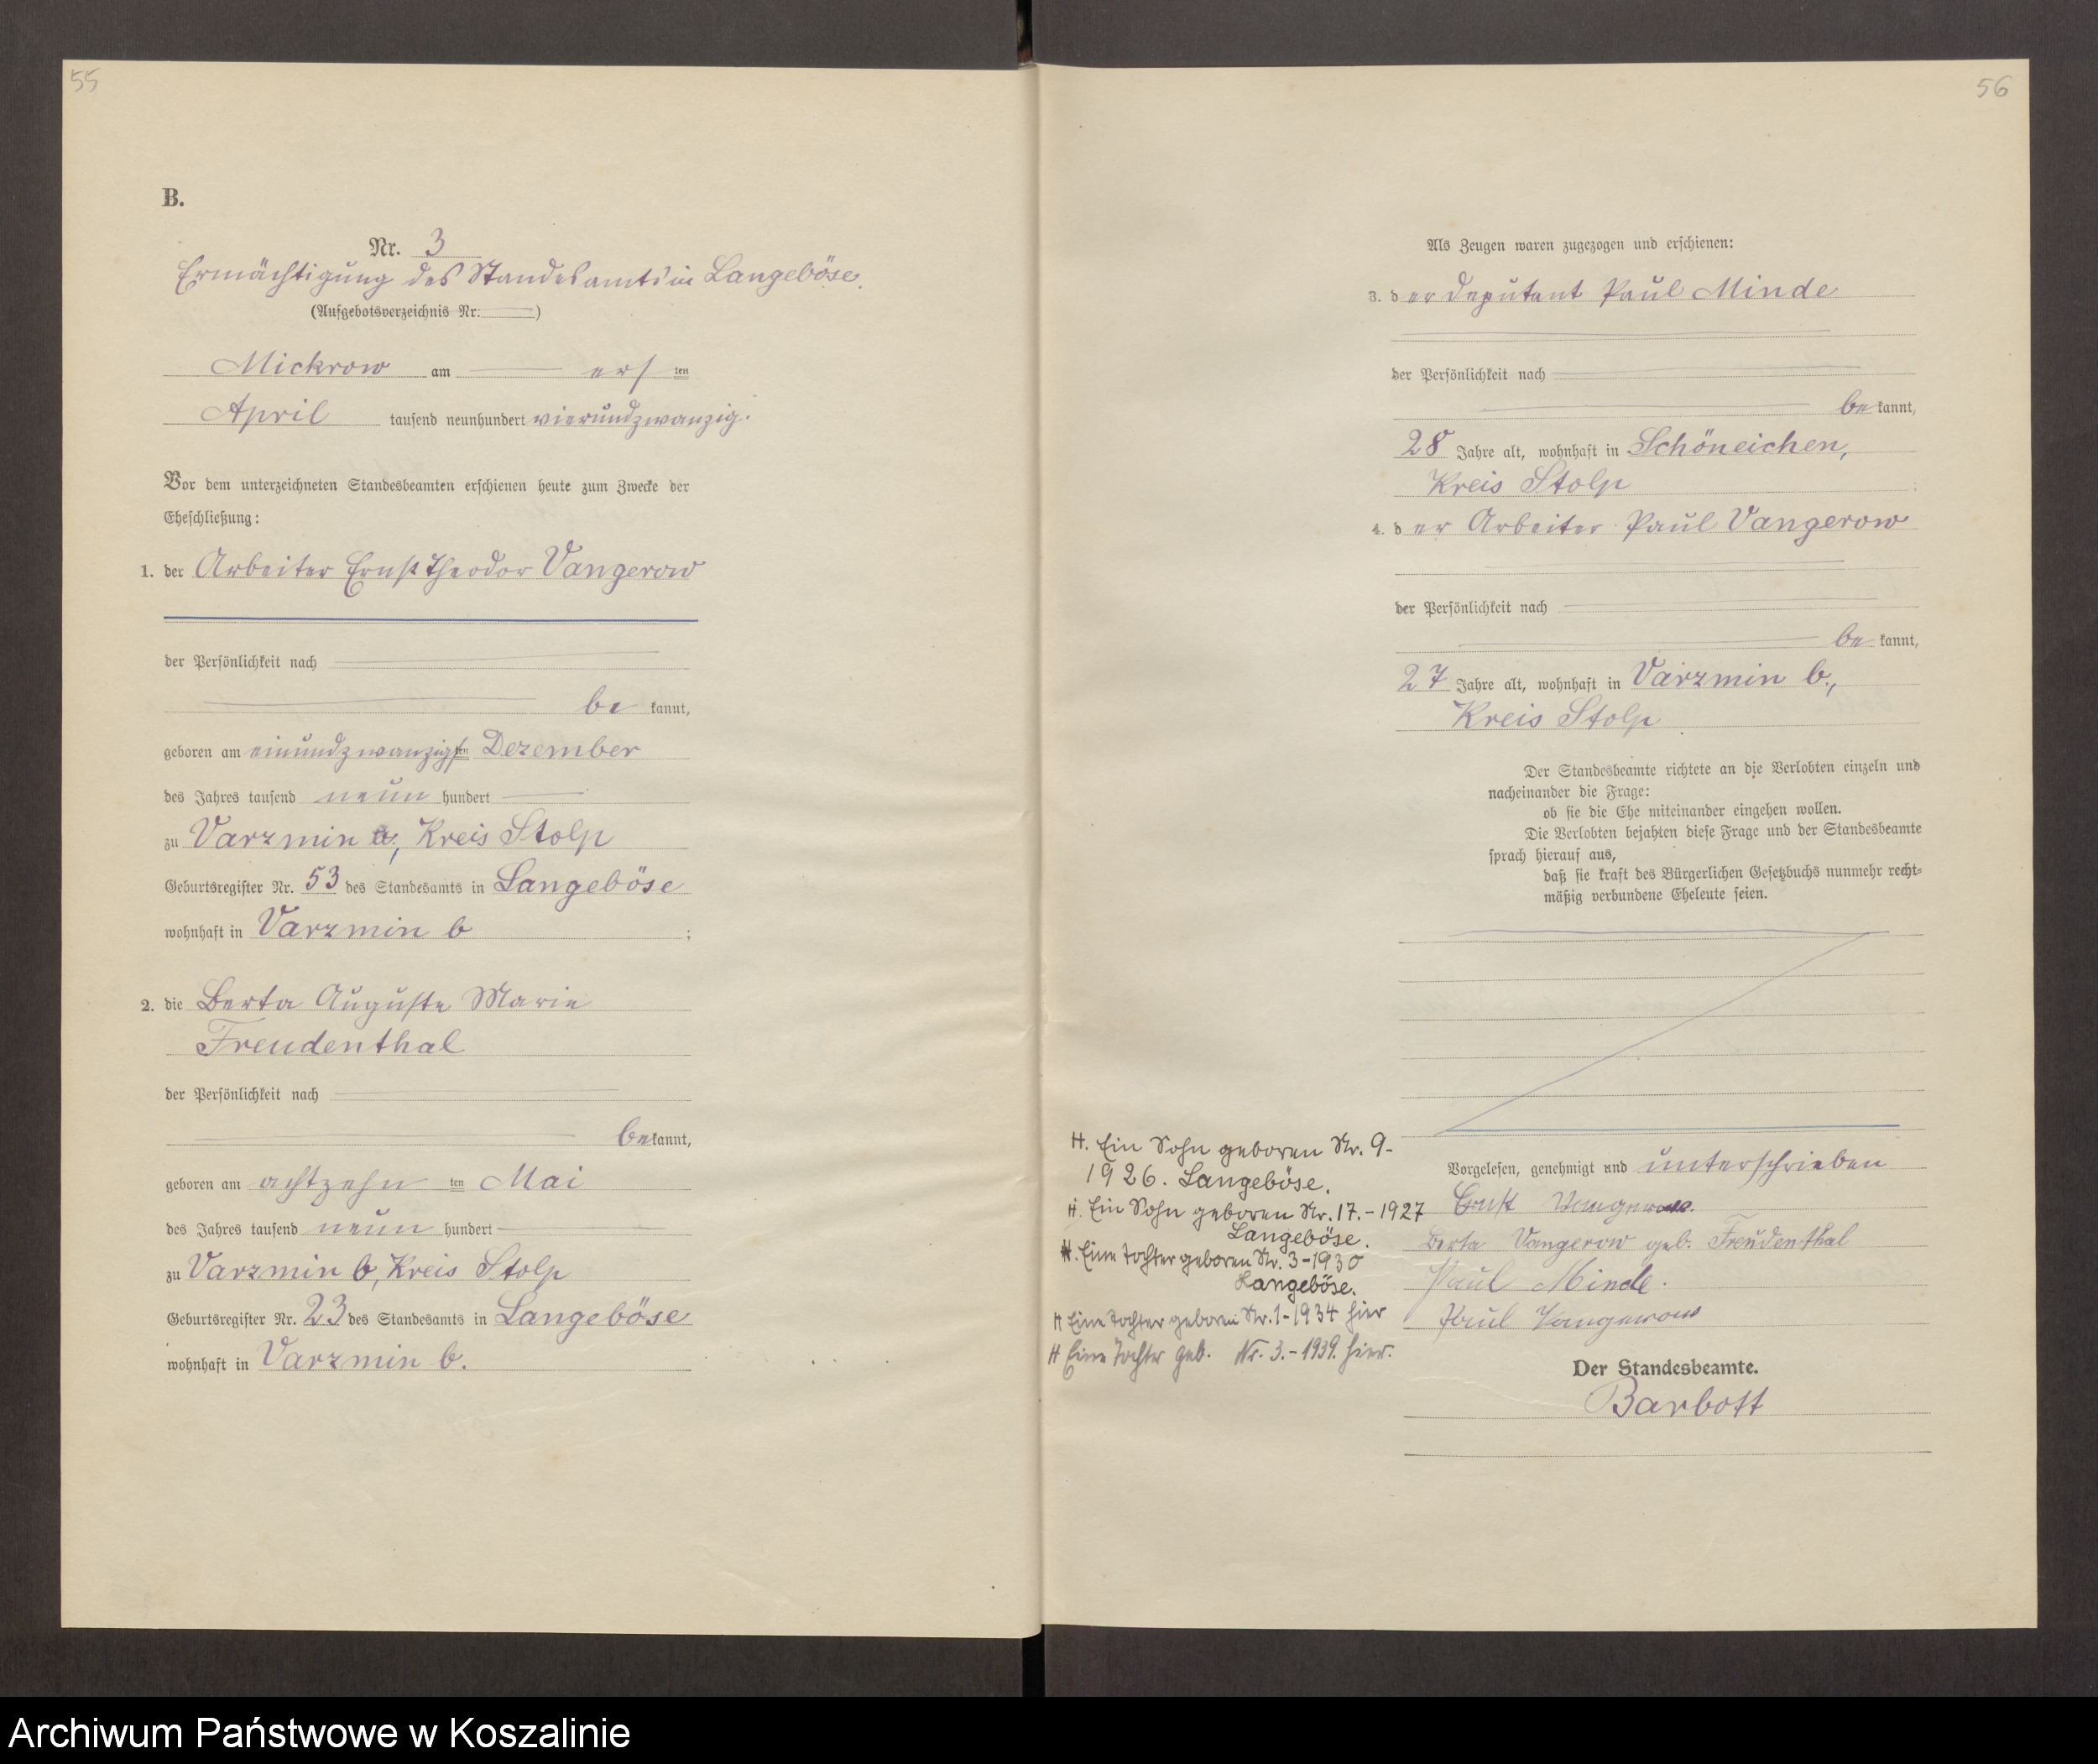 55
B.
Nr. 3
Ermächtigung des Standesamts in Langeböse.
(Aufgebotsverzeichnis Nr. )
Mickrow am ersten
April tausend neunhundert vierundzwanzig.
Vor dem unterzeichneten Standesbeamten erschienen heute zum Zwecke der
Eheschließung:
1. der Arbeiter Ernst Theodor Vangerow
der Persönlichkeit nach
be kannt,
geboren am einundzwanzigsten Dezember
des Jahres tausend neun hundert
zu Varzmin, Kreis Stolp
Geburtsregister Nr. 53 des Standesamts in Langeböse
wohnhaft in Varzmin b ;
2. die Berta Auguste Marie
Freudenthal
der Persönlichkeit nach
bekannt,
geboren am achtzehn ten Mai
des Jahres tausend neun hundert
zu Varzmin b, Kreis Stolp
Geburtsregister Nr. 23 des Standesamts in Langeböse
wohnhaft in Varzmin b.
56
Als Zeugen waren zugezogen und erschienen:
3. der Deputant Paul Minde
der Persönlichkeit nach
be kannt,
28 Jahre alt, wohnhaft in Schöneichen,
Kreis Stolp ;
4. der Arbeiter Paul Vangerow
der Persönlichkeit nach
be kannt,
27 Jahre alt, wohnhaft in Varzmin b.,
Kreis Stolp
Der Standesbeamte richtete an die Verlobten einzeln und
nacheinander die Frage:
ob sie die Ehe miteinander eingehen wollen.
Die Verlobten bejahten diese Frage und der Standesbeamte
sprach hierauf aus,
daß sie kraft des Bürgerlichen Gesetzbuchs nunmehr recht-
mäßig verbundene Eheleute seien.
Vorgelesen, genehmigt und unterschrieben
Ernst Vangerow.
Berta Vangerow geb. Freudenthal
Paul Minde.
Paul Vangerow
Der Standesbeamte.
Barbott
H. Ein Sohn geboren Nr. 9-
1926. Langeböse.
H. Ein Sohn geboren Nr. 17.-1927
Langeböse.
H. Eine Tochter geboren Nr. 3-1930
Langeböse.
H Eine Tochter geboren Nr. 1-1934 hier
H Eine Tochter geb. Nr. 3.-1939. hier.
Archiwum Państwowe w Koszalinie